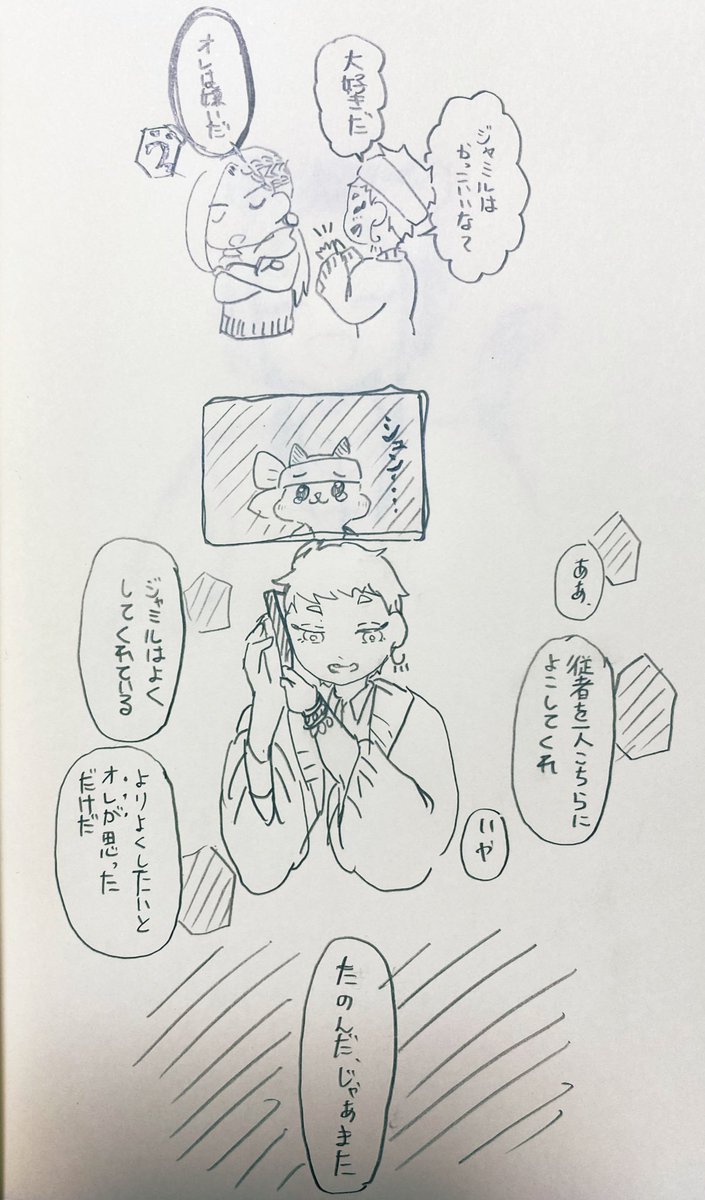 ジャミルは
かっこいいなぁ
大好きだ
オレは嫌いだ
シュン・・・・
ああ、
従者を一人こちらに
よこしてくれ
いや
ジャミルはよく
してくれている
よりよくしたいと
オレが思った
だけだ
たのんだ、じゃあまた